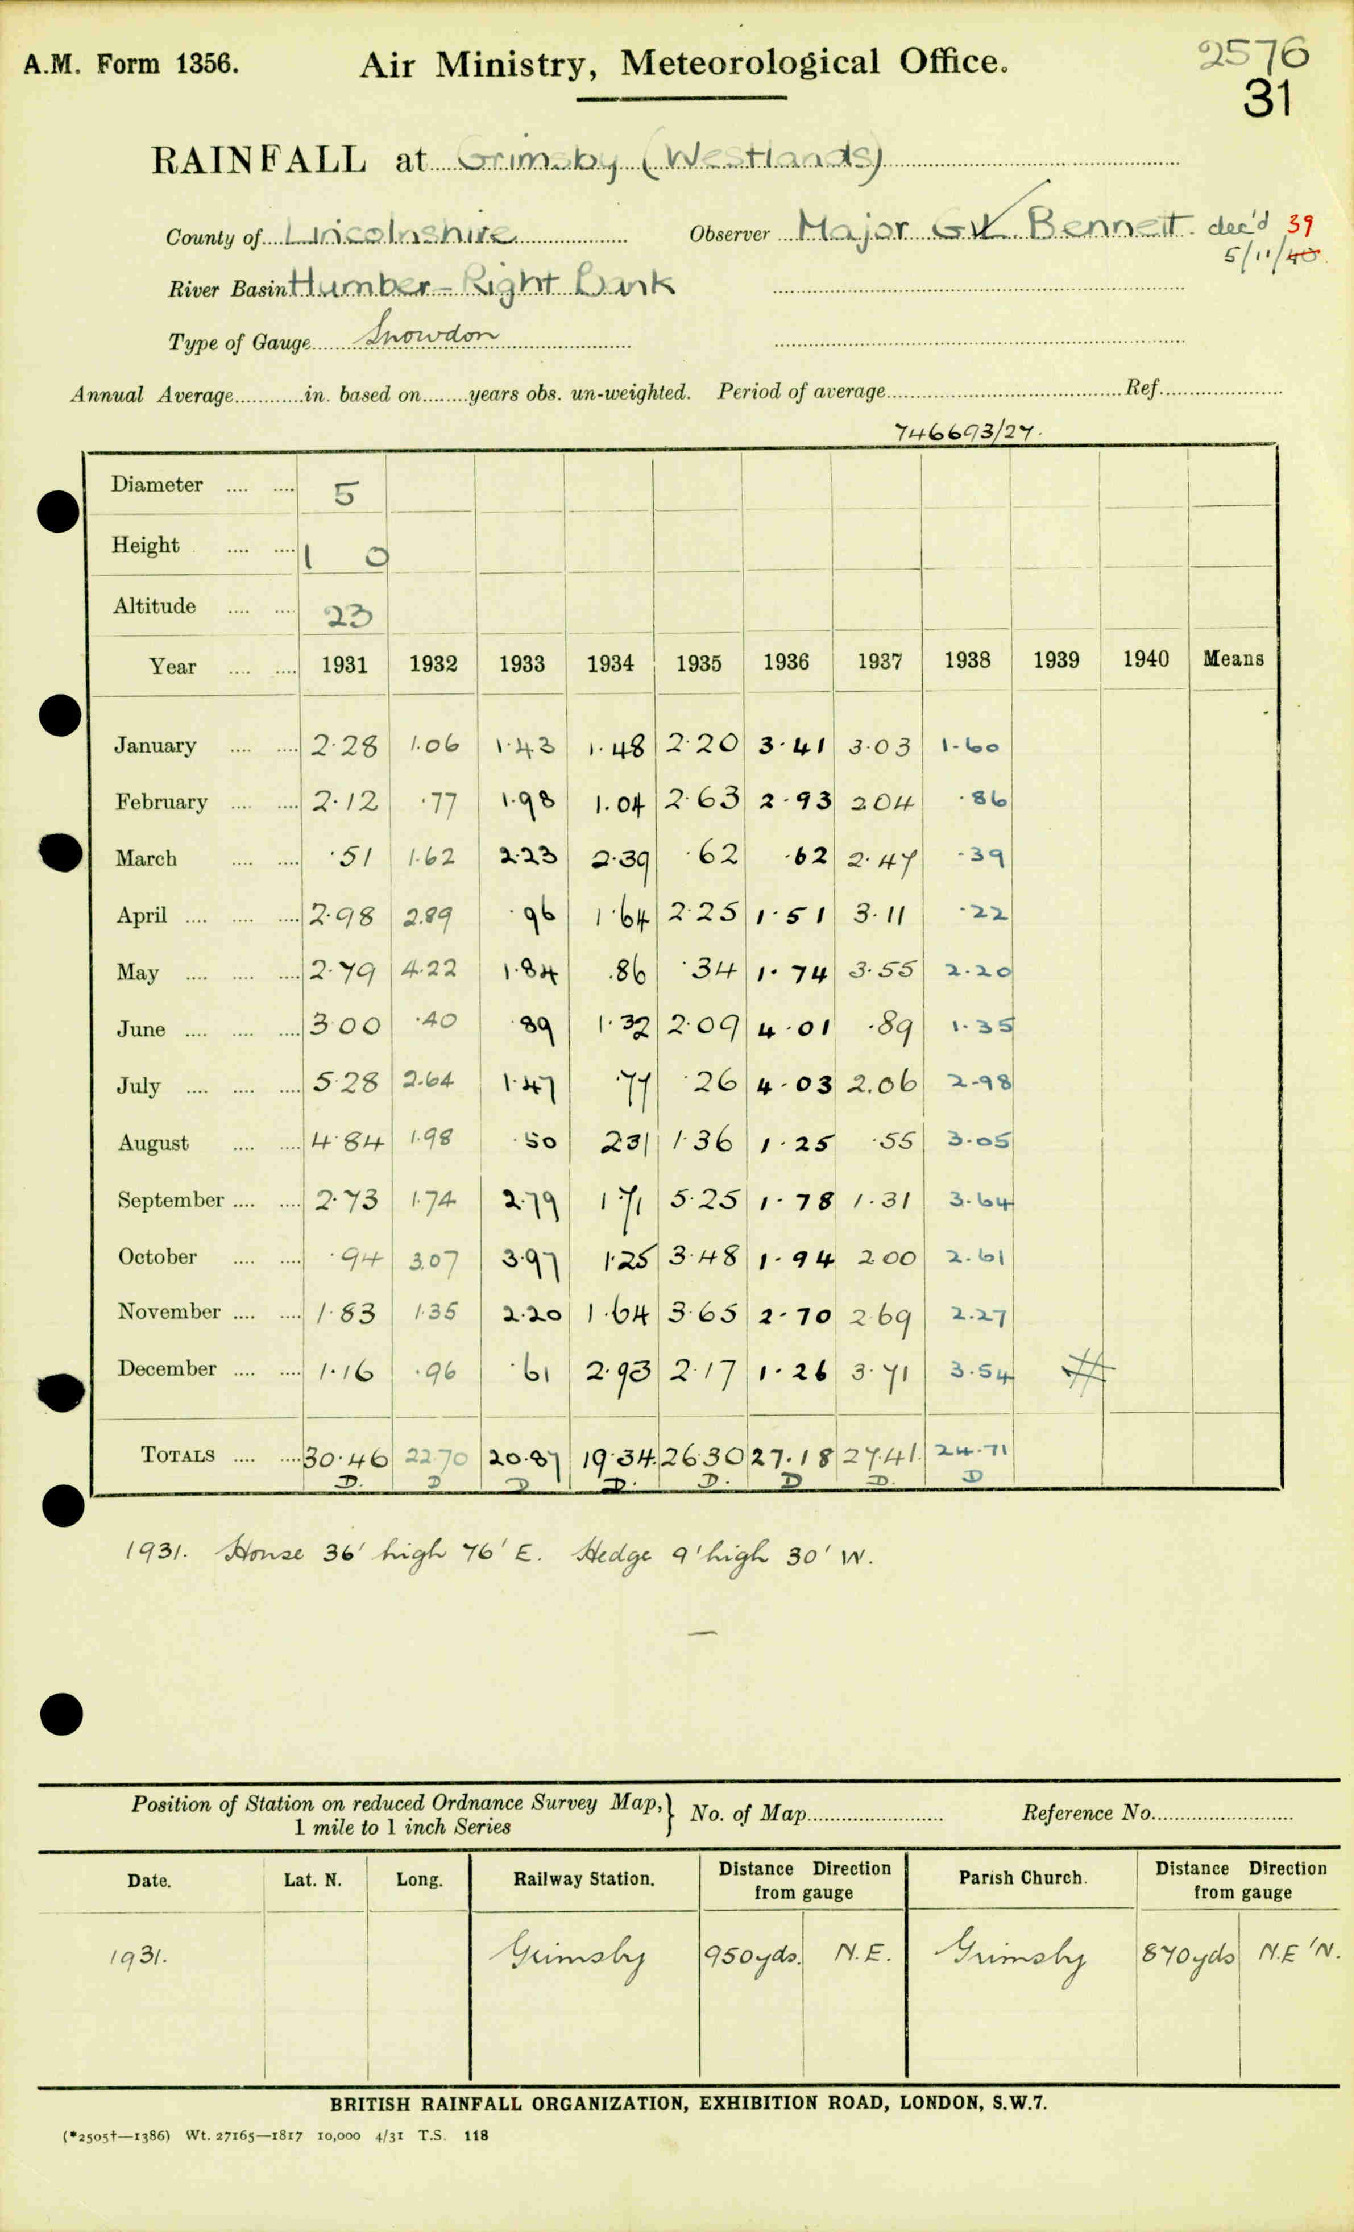 A.M. Form 1356.
Air Ministry, Meteorological Office.
2576
31
RAINFALL at Grimsby (Westlands)
County of Lincolnshire
Observer Major G.V. Bennett. dec'd 39
5/11/40.
River Basin Humber - Right Bank
Type of Gauge Snowdon
Annual Average in. based on years obs. un-weighted. Period of average Ref.
746693/27.
Diameter 5
Height 1 0
Altitude 23
Year 1931 1932 1933 1934 1935 1936 1937 1938 1939 1940 Means
January 2·28 1·06 1·43 1·48 2·20 3·41 3·03 1·60
February 2·12 ·77 1·98 1·04 2·63 2·93 204 ·86
March ·51 1·62 2·23 2·39 ·62 ·62 2·47 ·39
April 2·98 2.89 ·96 1·64 2·25 1·51 3·11 ·22
May 2·79 4·22 1·84 ·86 ·34 1·74 3·55 2·20
June 3·00 ·40 ·89 1·32 2·09 4·01 ·89 1·35
July 5·28 2·64 1·47 ·77 ·26 4·03 2.06 2·98
August 4·84 1·98 ·50 231 1·36 1·25 ·55 3·05
September 2·73 1·74 2·79 1 71 5·25 1·78 1·31 3·64
October ·94 3.07 3·97 1·25 3·48 1·94 2.00 2·61
November 1·83 1·35 2·20 1·64 3·65 2·70 2·69 2·27
December 1·16 ·96 ·61 2·93 2·17 1·26 3·71 3·54 #
TOTALS 30·46 22·70 20·87 19·34. 26·30 27·18 27·41. 24·71
D. D D D. D. D D. D
1931. House 36' high 76' E. Hedge 9' high 30' W.
Position of Station on reduced Ordnance Survey Map,
1 mile to 1 inch Series
No. of Map
Reference No.
Date. Lat. N. Long. Railway Station. Distance Direction from gauge Parish Church. Distance Direction from gauge
1931. Grimsby 950yds. N.E. Grimsby 870yds N.E'N.
BRITISH RAINFALL ORGANIZATION, EXHIBITION ROAD, LONDON, S.W.7.
(*2505†—1386) Wt. 27165—1817 10,000 4/31 T.S. 118